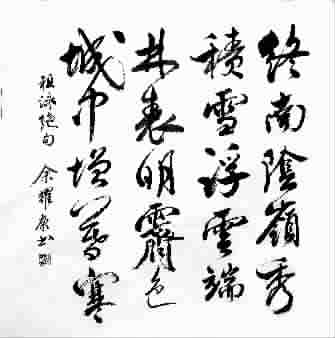 終南陰嶺秀
積雪浮雲端
林表明霽色
城中增暮寒
祖詠絕句 余耀康書